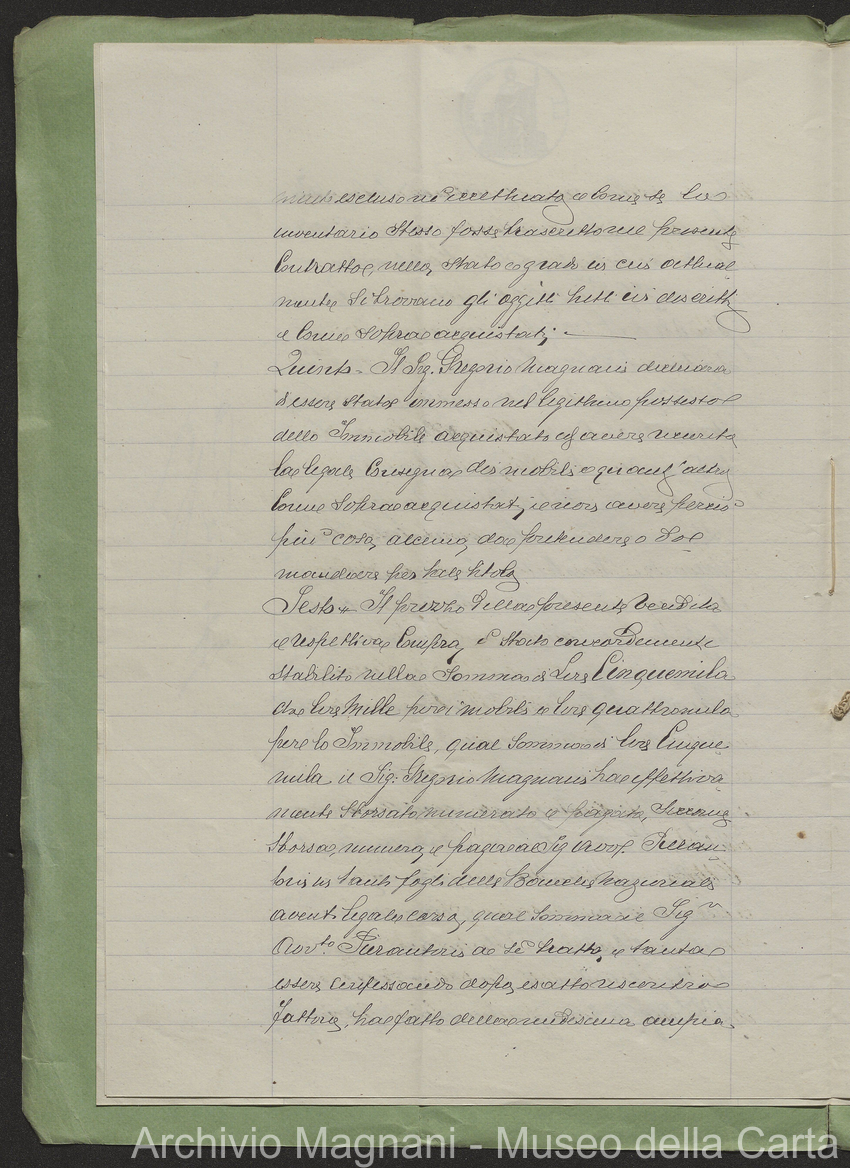 escluso nè eccettuato e come se lo
inventario stesso fosse trascritto nel presente
Contratto, nello stato e grado in cui attual
mente si trovano gli oggetti tutti ivi descritti
e come sopra acquistati;
Quinto = Il Sig. Gregorio Magnani dichiara
d'essere stato immesso nel legittimo possesso
dello Immobile acquistato ed avere ricevuta
la legale Consegna dei mobili e quant'altro
come sopra acquistati, e non avere perciò
più cosa alcuna da pretendere o do
mandare per tale titolo
Sesto = Il prezzo della presente vendita
e respettiva Compra, è stato concordemente
stabilito nella somma di Lire Cinquemila
cioè lire Mille per i mobili e lire quattromila
per lo Immobile, qual somma di lire Cinque
mila il Sig: Gregorio Magnani ha effettiva
mente sborsato numerato e pagato, siccome
sborsa, numera, e paga al Sig Avv.
in tanti fogli della Banca Nazionale
aventi legale corso, qual somma il Sig.r
Avv.to a sè tratta, e tanta
essere confessando dopo esatto riscontro
fattone, ha fatto della medesima ampia
Archivio Magnani - Museo della Carta